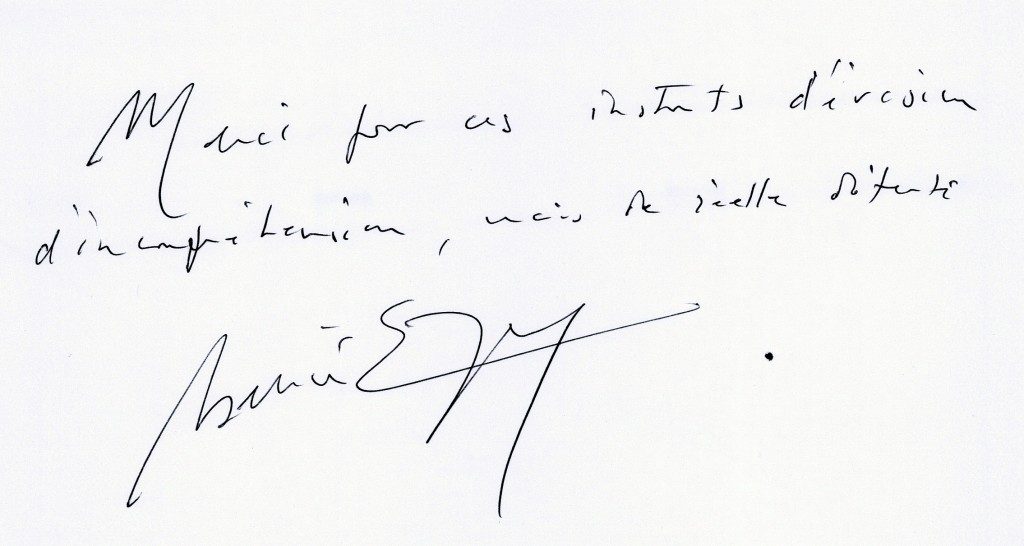 Merci pour ces instants d'évasion
d'incompréhension, mais de réelle détente